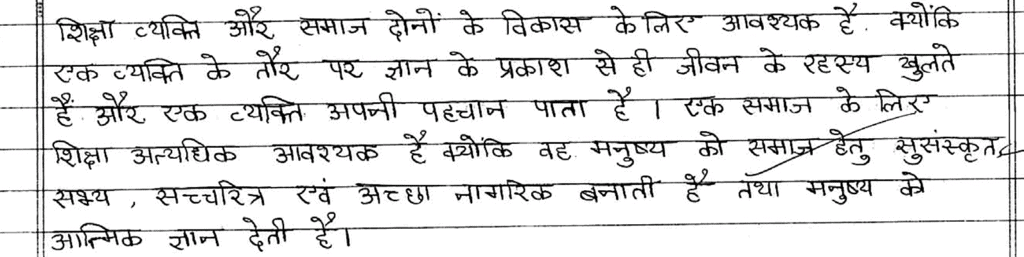 शिक्षा व्यक्ति और समाज दोनों के विकास के लिए आवश्यक है. क्योंकि
एक व्यक्ति के तौर पर ज्ञान के प्रकाश से ही जीवन के रहस्य खुलते
हैं और एक व्यक्ति अपनी पहचान पाता है । एक समाज के लिए
शिक्षा अत्यधिक आवश्यक है क्योंकि वह मनुष्य को समाज हेतु सुसंस्कृत,
सभ्य , सच्चरित्र एवं अच्छा नागरिक बनाती है तथा मनुष्य को
आत्मिक ज्ञान देती है।